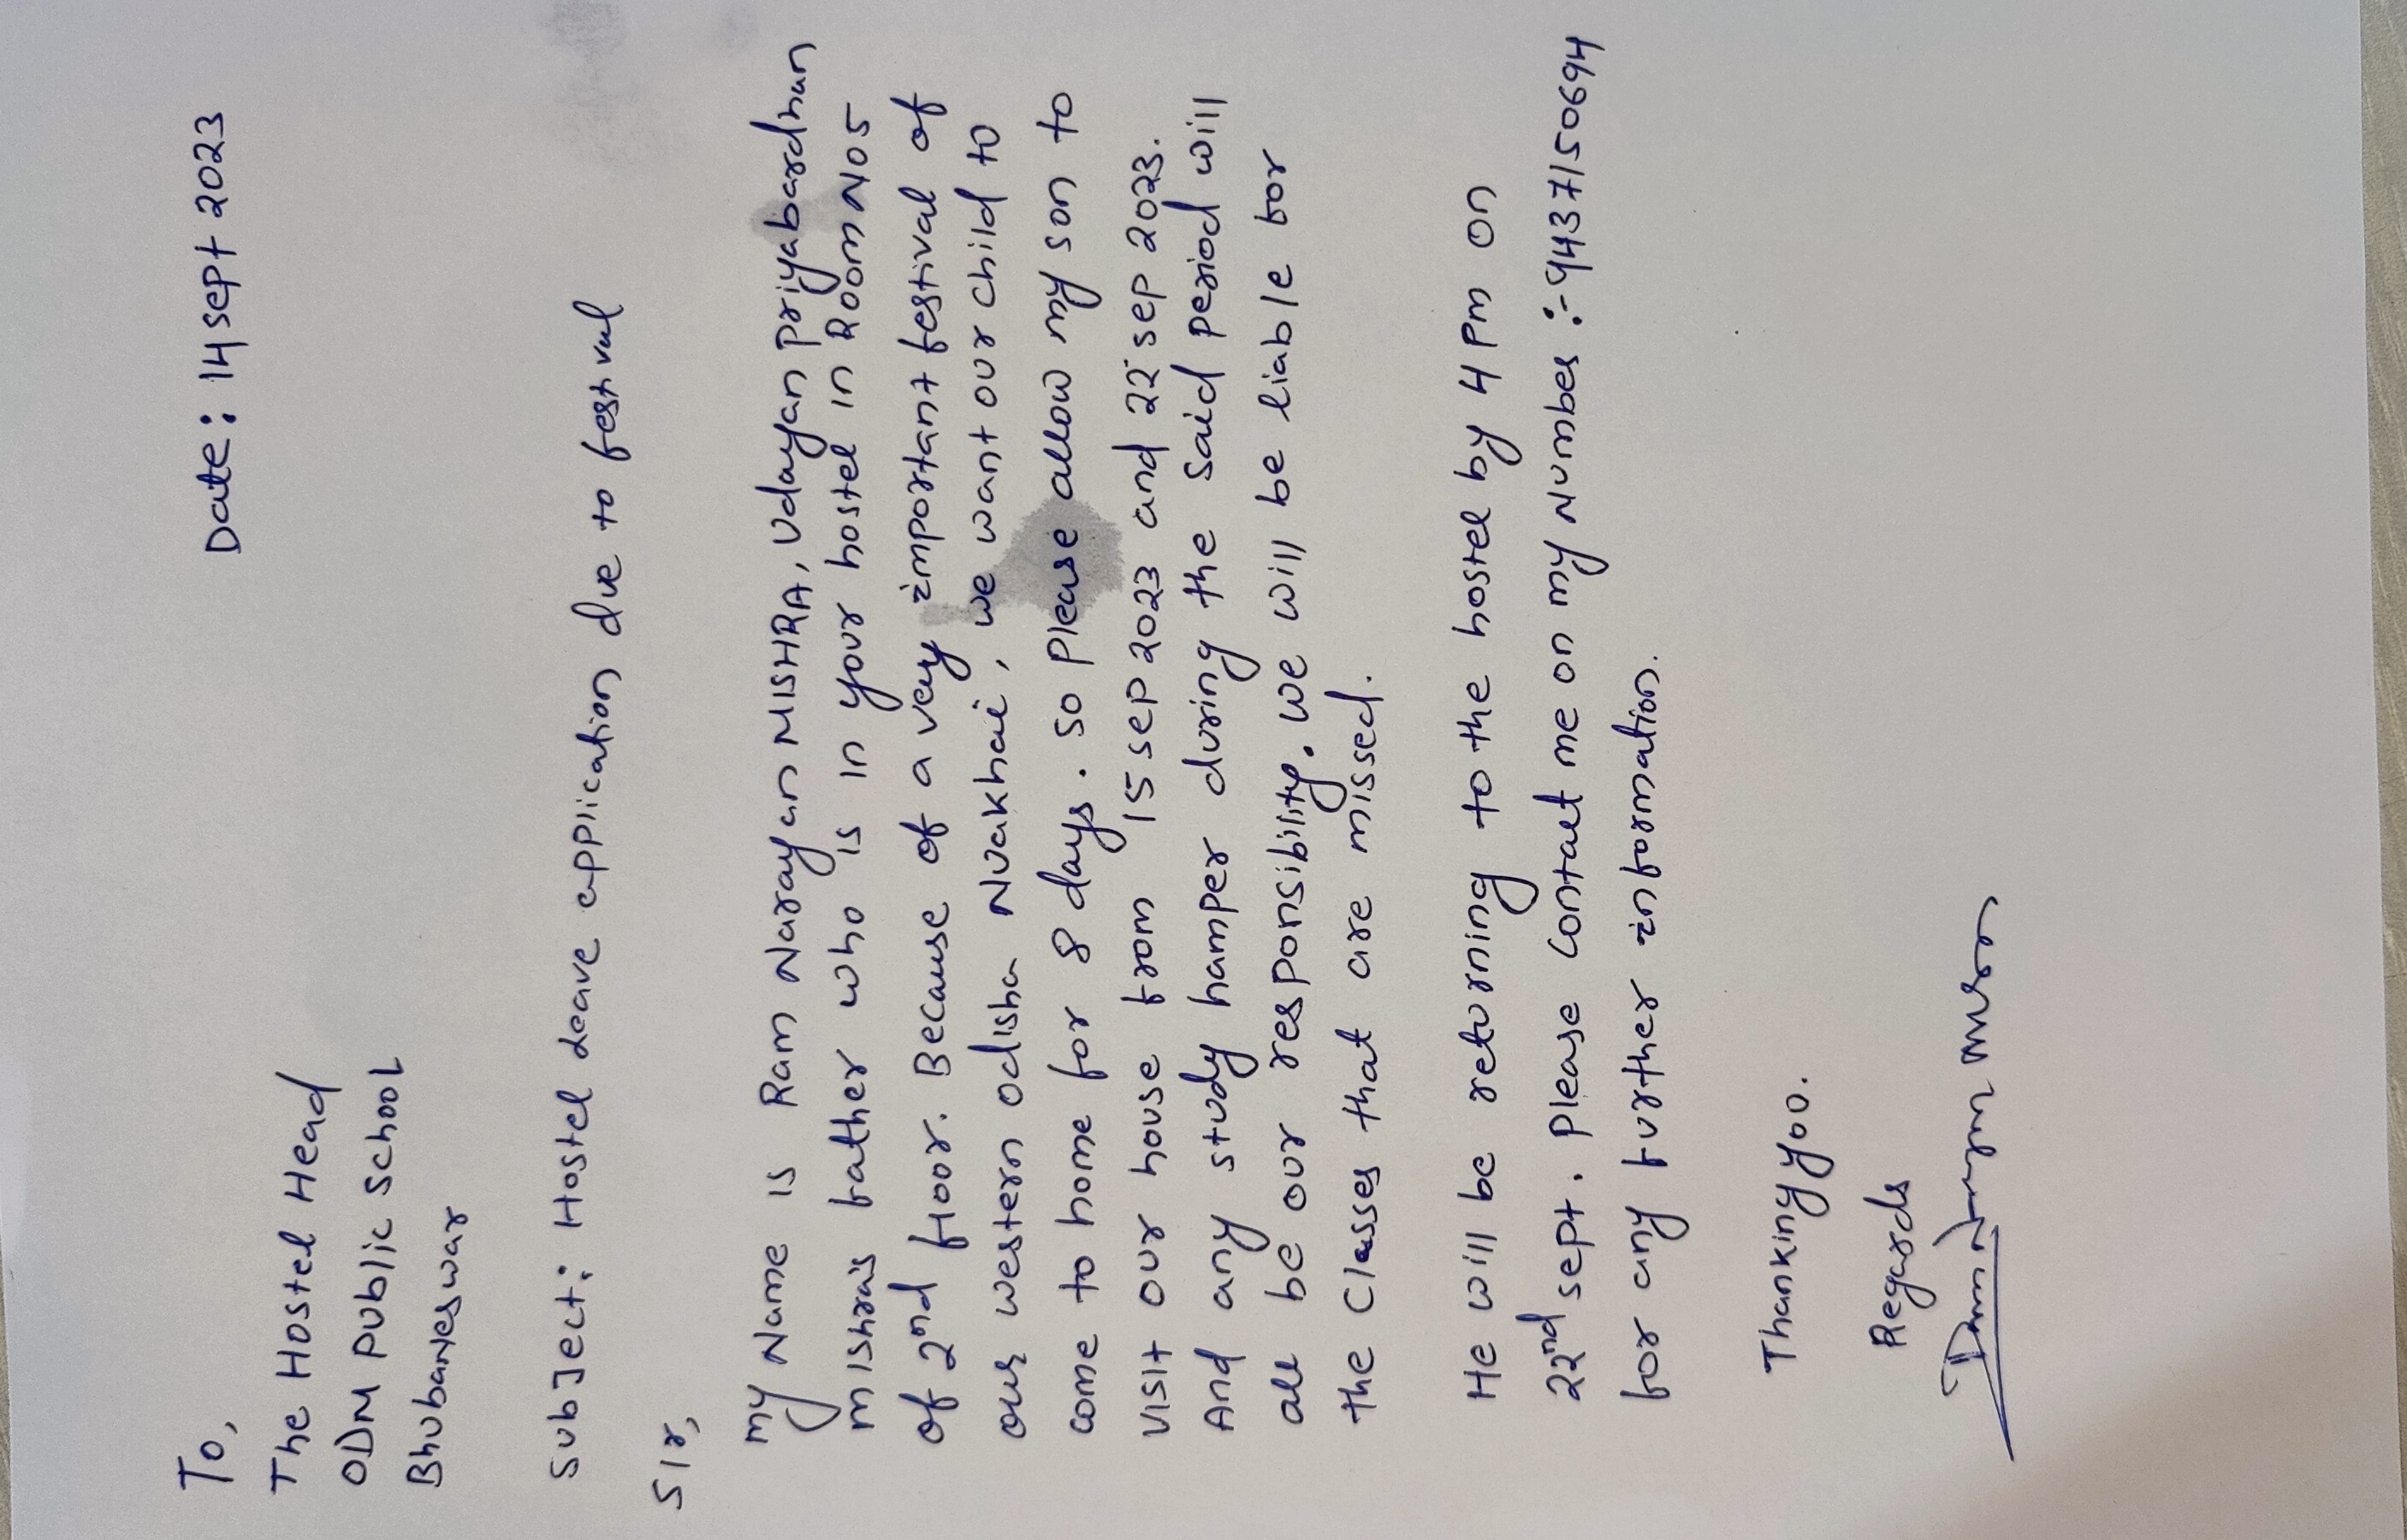 To,
Date: 14 sept 2023
The Hostel Head
ODM Public School
Bhubaneswar
Subject: Hostel Leave application due to festival
Sir,
my Name is Ram Narayan MISHRA, Udayan priyabardhan
mishra's father who is in your hostel in Room No 5
of 2nd floor. Because of a very important festival of
our western odisha Nuakhai, we want our child to
come to home for 8 days. so please allow my son to
visit our house from 15 sep 2023 and 22 sep 2023.
And any study hamper during the said period will
all be our responsibility. we will be liable for
the classes that are missed.
He will be returning to the hostel by 4 pm on
22nd sept. please contact me on my Number :- 9437150694
for any further information.
Thanking you.
Regards